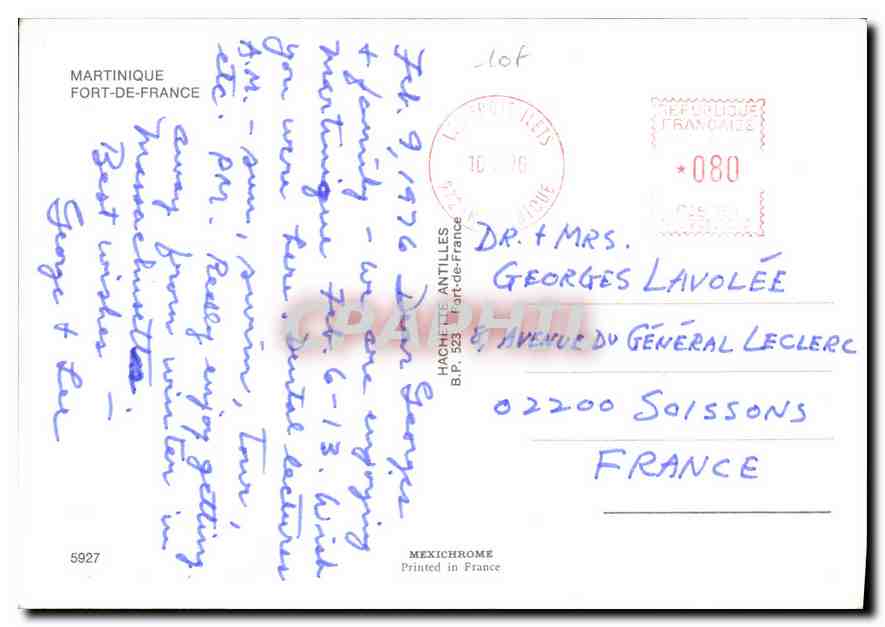 MARTINIQUE
FORT-DE-FRANCE
lot
Feb. 9, 1976 Dear Georges
+ family - we are enjoying
Martinique Feb. 6-13. Wish
you were here. Dental lectures
A.M. - sun, swim, tour,
etc. P.M. Really enjoy getting
away from winter in
Massachusetts.
Best wishes -
George + Lee
REPUBLIQUE
FRANCAISE
*080
HACHETTE ANTILLES
B.P. 523 Fort-de-France
CPAPHIL
DR. + MRS.
GEORGES LAVOLÉE
8, AVENUE DU GÉNÉRAL LECLERC
02200 SOISSONS
FRANCE
5927
MEXICHROME
Printed in France